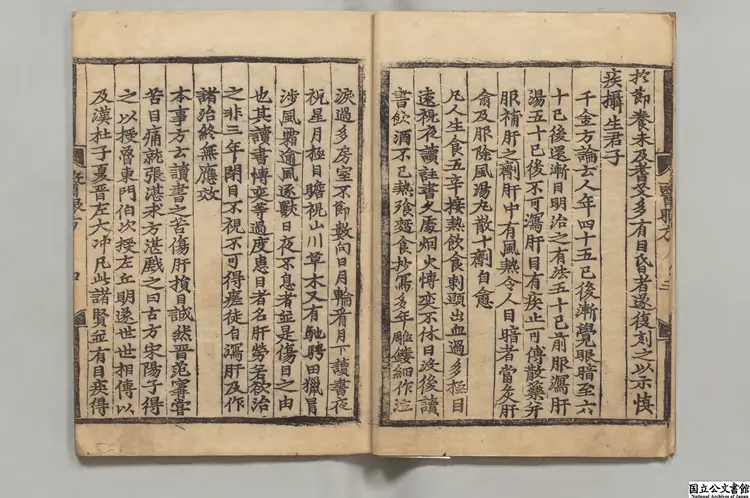 於節養未及耆艾多有目昏者遂復刻之以示慎
疾攝生君子
千金方論云人年四十五已後漸覺眼暗至六
十已後還漸目明治之有法五十已前服瀉肝
湯五十已後不可瀉肝目有疾止可傅散藥并
服補肝之劑肝中有風熱令人目暗者當灸肝
俞及服除風湯丸散十劑自愈
凡人生食五辛接熱飲食刺頭出血過多極目
遠視夜讀註書久處烟火博奕不休日没後讀
書飲酒不已熱飡麵食抄寫多年雕鏤細作泣
淚過多房室不節數向日月輪看月下讀書夜
視星月極目瞻視山川草木又有馳騁田獵冒
涉風霜迎風逐獸日夜不息者並是傷目之由
也其讀書博奕等過度患目者名肝勞若欲治
之非三年閉目不視不可得瘥徒自瀉肝及作
諸治終無應效
本事方云讀書之苦傷肝損目誠然晉范甯嘗
苦目痛就張湛求方湛戲之曰古方宋陽子得
之以授魯東門伯次授左丘明遂世世相傳以
及漢杜子夏晉左太冲凡此諸賢並有目疾得
醫眼方 四
国立公文書館
National Archives of Japan